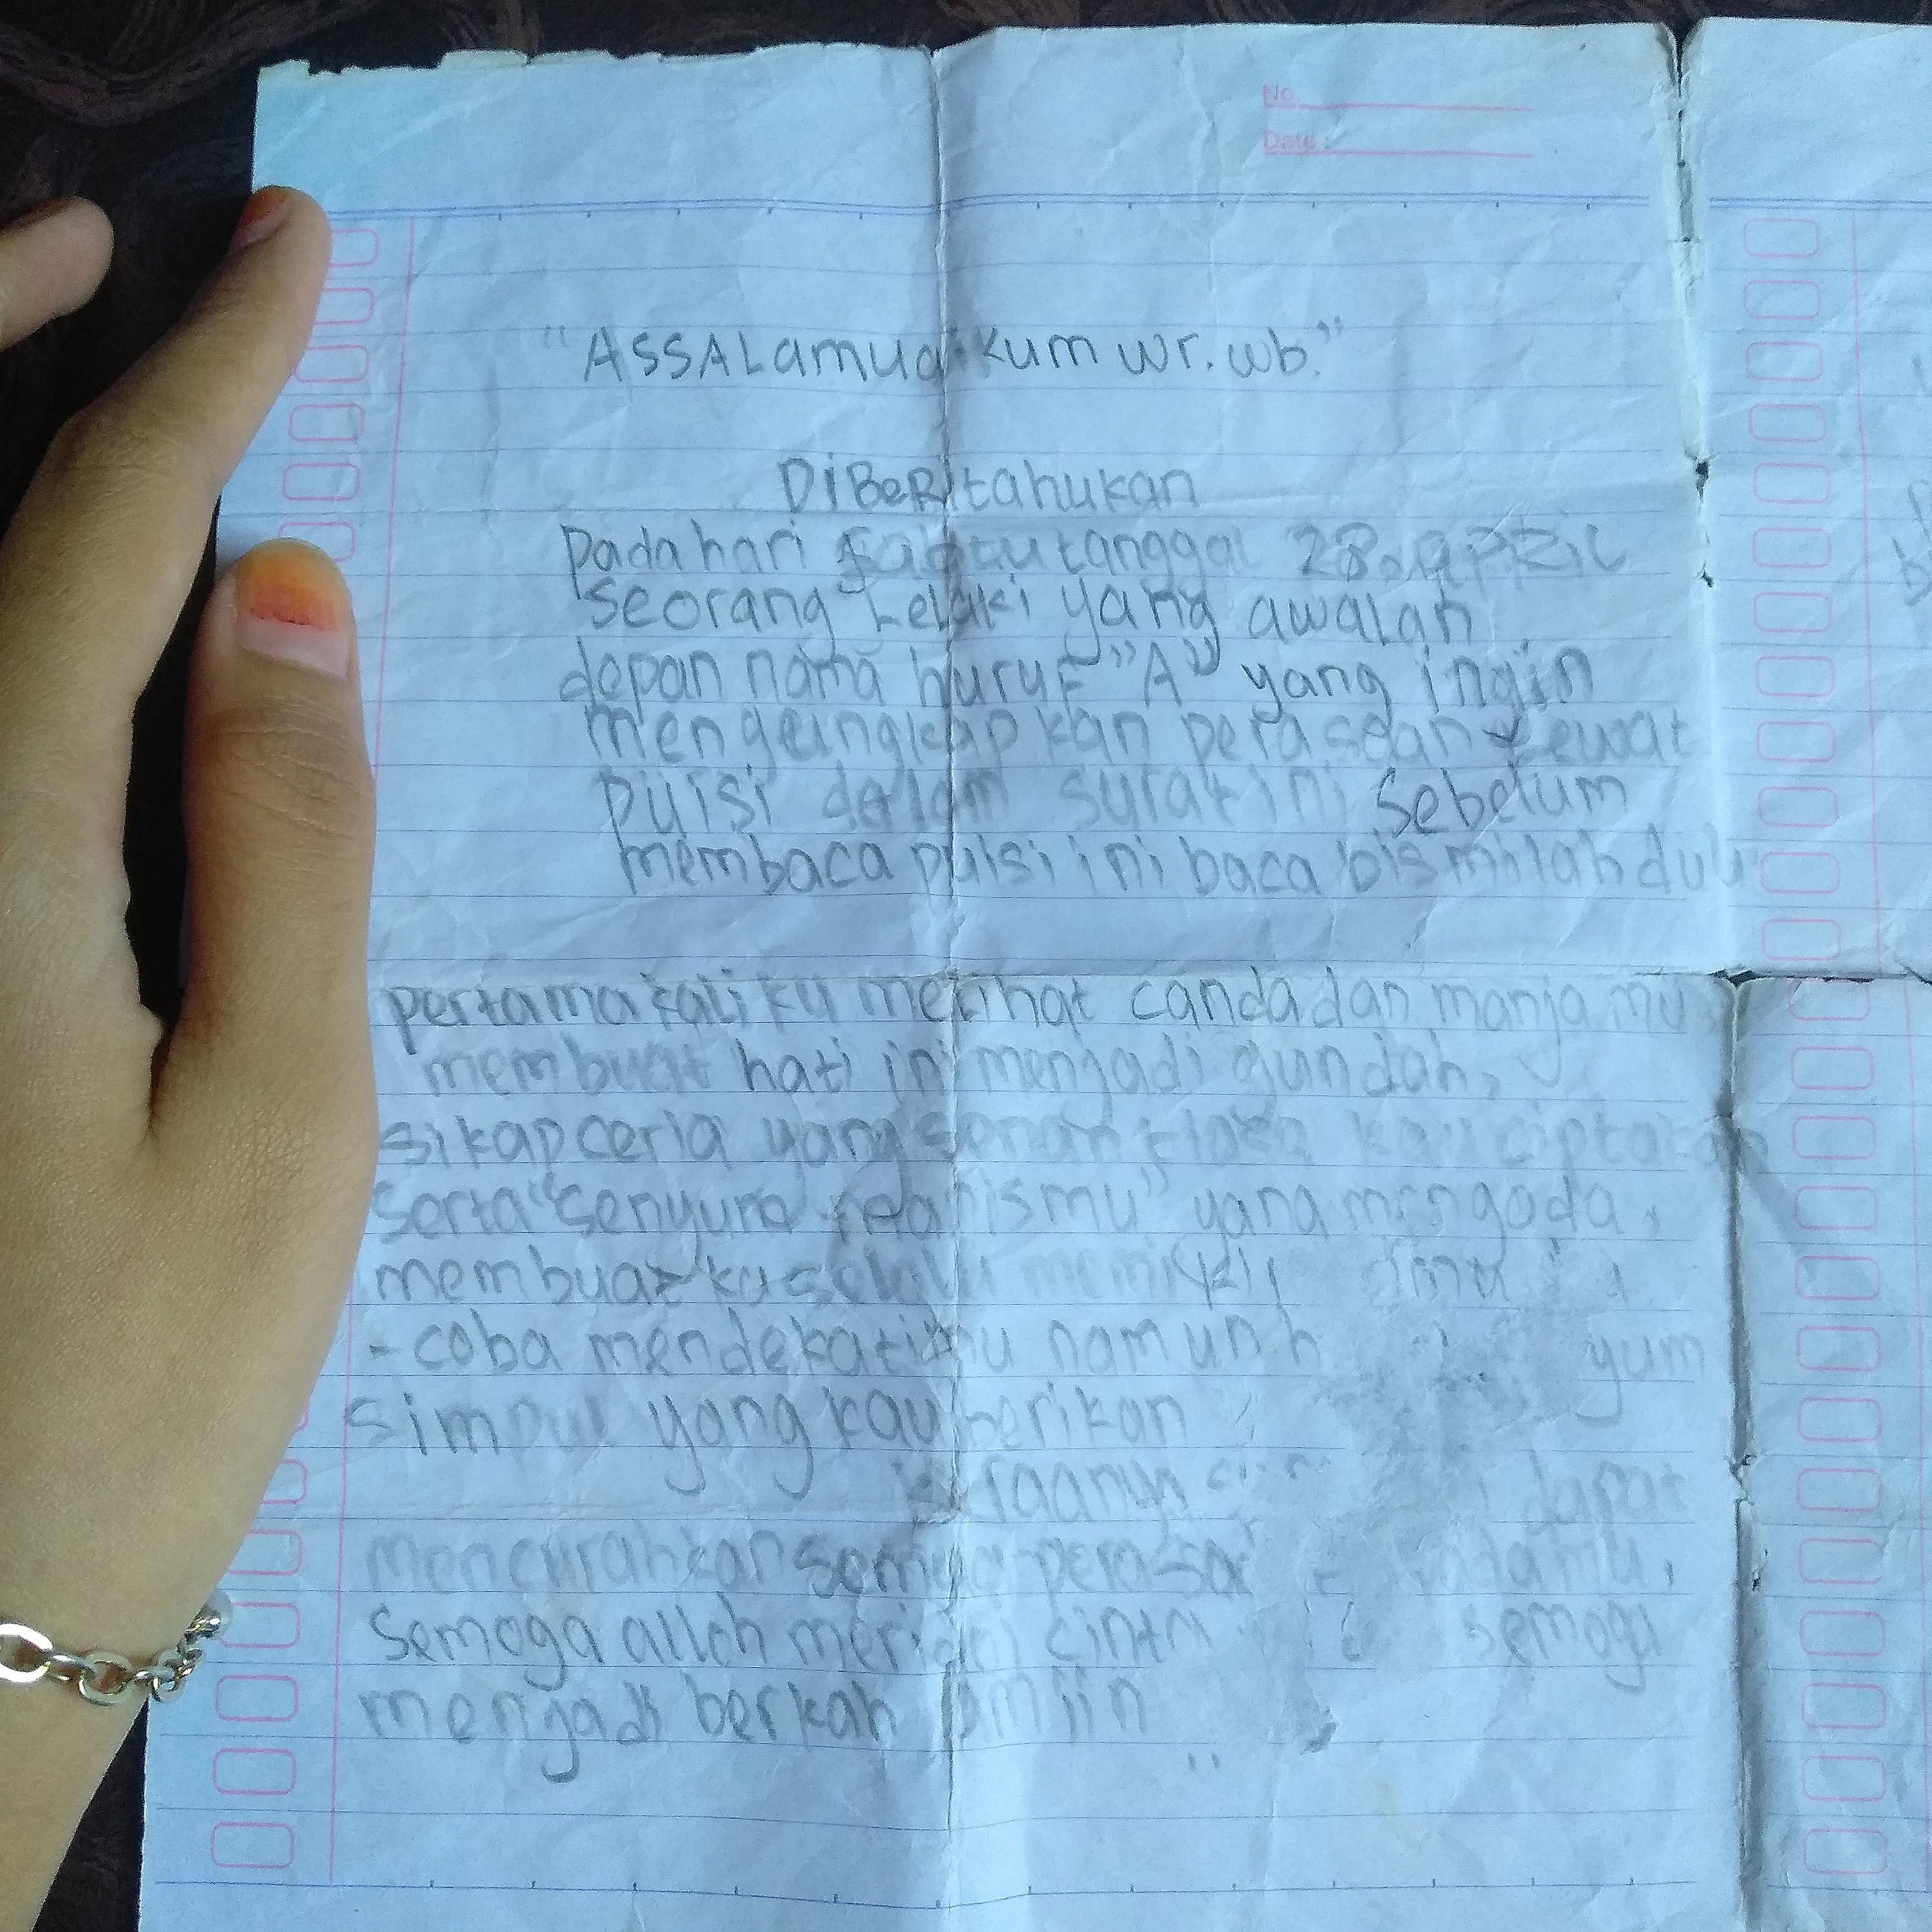 No.
Date :
"ASSALamuaikum wr. wb."
DiBeRitahukan
pada hari sabtu tanggal 28. april
seorang Lelaki yang awalan
depan nama huruf "A" yang ingin
mengungkapkan perasaan Lewat
puisi dalam surat ini sebelum
membaca puisi ini baca bismilah dulu
pertama kali ku melihat canda dan manja mu
membuat hati ini menjadi gundah,
sikap ceria yang kau ciptakan
serta "senyum manismu" yang mengoda,
membuat ku selalu
- coba mendekatimu namun yum
simpul yang kau berikan
dapat
mencurahkan semua
semoga alloh meridoi cinta semoga
menjadi berkah amiin